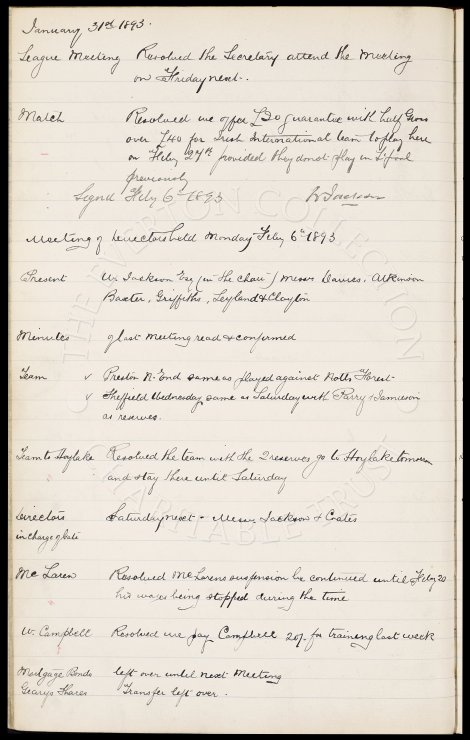 January 31st 1893.
League Meeting Resolved the Secretary attend the Meeting
on Friday next.
Match Resolved we offer £30 guarantee with half Gross
over £40 for Irish International team to play here
on Feby 27th provided they do not play in L'pool
previously
Signed Feby 6th 1893 W Jackson
Meeting of Directors held Monday Feby 6th 1893
Present W. Jackson Esq (in the chair) Messrs Davies, Atkinson
Baxter, Griffiths, Leyland & Clayton
Minutes of last meeting read & confirmed
Team v Preston N. End same as played against Notts Forest
v Sheffield Wednesday same as Saturday with Parry & Jamieson
as reserves.
Team to Hoylake Resolved the team with the 2 reserves go to Hoylake tomorrow
and stay there until Saturday
Directors Saturday next - Messrs Jackson & Coates
in charge of gate
McLaren Resolved McLarens suspension be continued until Feby 20
his wages being stopped during the time
W. Campbell Resolved we pay Campbell 20/- for training last week
Mortgage Bonds left over until next Meeting
Gearys Shares Transfer left over.
THE EVERTON COLLECTION
CHARITABLE TRUST